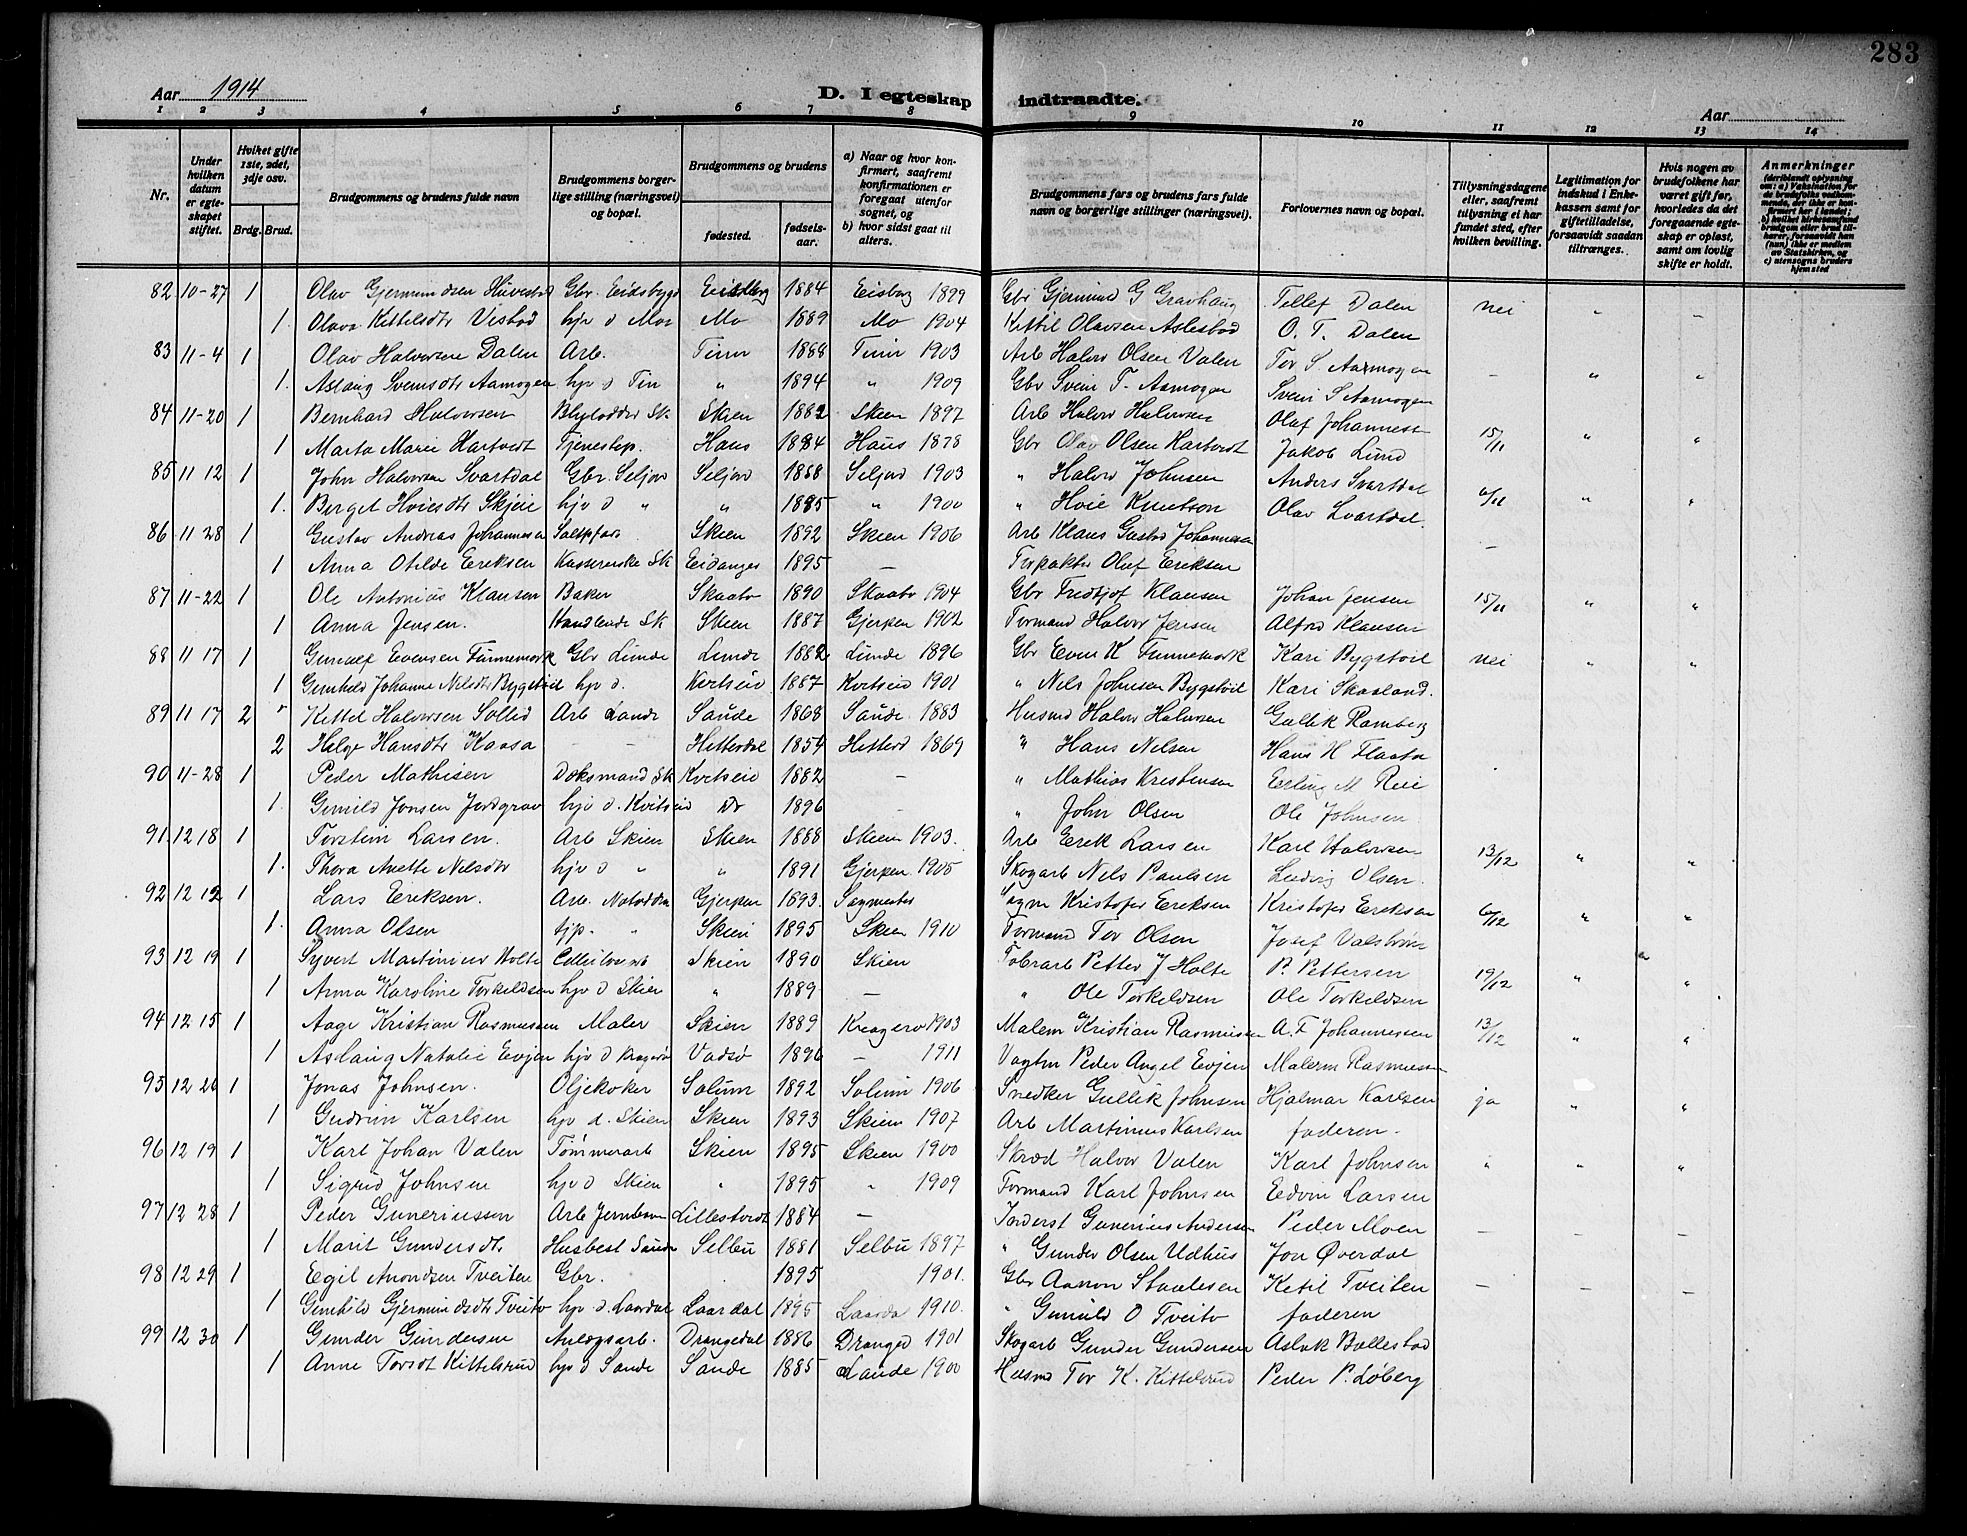 283
Aar 1914
D. I egteskap indtraadte.
Aar
1 2 3 4 5 6 7 8 9 10 11 12 13 14
Nr.
Under hvilken datum er egteskapet stiftet.
Hvilket gifte 1ste, 2det, 3dje osv.
Brdg. Brud.
Brudgommens og brudens fulde navn
Brudgommens borgerlige stilling (næringsvei) og bopæl.
Brudgommens og brudens
fødested.
fødselsaar.
a) Naar og hvor konfirmert, saafremt konfirmationen er foregaat utenfor sognet, og
b) hvor sidst gaat til alters.
Brudgommens fars og brudens fars fulde navn og borgerlige stillinger (næringsvei).
Forlovernes navn og bopæl.
Tillysningsdagene eller, saafremt tillysning ei har fundet sted, efter hvilken bevilling.
Legitimation for indskud i Enkekassen samt for giftetilladelse, forsaavidt saadan tiltrænges.
Hvis nogen av brudefolkene har været gift før, hvorledes da det foregaaende egteskap er opløst, samt om lovlig skifte er holdt.
Anmerkninger
82 10-27 1 Olav Gjermundsen Gbr. Eidsbygd 1884 1899 Gbr Gjermund G Gravhaug Tellef Dalen nei " -
1. Olava Kittelsdtr Vistad hjv d Mo Mo 1889 Mo 1904 Kittil Olavsen Aslestad O. T. Dalen
83 11-4 1 Olav Halvorsen Dalen Arb. Tinn 1888 Tinn 1903 Arb Halvor Olsen Valen Tor S. Aamogen - " "
1. Aslaug Sveinsdtr Aamogen hjv d Tin " 1894 " 1909 Gbr Svein T. Aamogen Svein S Aamogen
84 11-20 1 Bernhard Halvorsen Sk Skien 1882 Skien 1897 Arb Halvor Halvorsen Olaf Johannesen 15/11 " "
1 Marta Marie Hartvedt Tjenestep. Haus Haus 1878 Gbr Olav Olsen Hartvedt Jakob Lund
85 11 12 1 John Halvorsen Svartdal Gbr. Seljor Seljor 1888 Seljord 1903 " Halvor Johnsen Anders Svartdal 6/11 " "
1. Berget Hviesdtr Skjeie hjv d " " 1885 " 1900 " Hvie Knutson Olav Svartdal.
86 11 28 1 Gustav Andreas Johannesen Skien 1892 Skien 1906 Arb Klaus Gustad Johannesen -
1 Anna Otilde Eriksen Kassererske Sk Eidanger 1895 - Olaf Eriksen
87 11-22 1 Ole Antonius Klausen Baker Skaatø 1890 Skaatø 1904 Gbr Fredtjof Klausen Johan Jensen 15/11 " "
1 Anna Jensen. Handlende Sk Skien 1887 Gjerpen 1902 Formand Halvor Jensen Alfred Klausen
88 11 17 1 Gunulf Evensen Funnemork Gbr Lunde Lunde 1882 Lunde 1896 Gbr Even K Funnemork Kari Bygstøil nei " "
1 Gunhild Johanne Nilsdtr Bygstøil hjv d. Kvitseid 1887 Kvitseid 1901 " Nils Johnsen Bygstøil Kari Skaaland.
89 11 17 2 Kittil Halvorsen Sollid Arb Saude 1868 Saude. 1883 Husmd Halvor Halvorsen Gullik Ramberg
2 Helge Hansdtr Kaasa - - Hitterdal 1854 Hitterd 1869 " Hans Nilsen Hans H Flaata
90 11-28 1 Peder Mathisen Sk Kvitseid 1882 - " Mathias Kristensen Erling M Reie
1. Gunild Jonsen Jordgrav hjv d. Kvitseid Do 1896 - " John Olsen Ole Johnsen
91 12 18 1 Torstein Larsen. Arb Skien Skien 1888 Skien 1903. Arb Erik Larsen Karl Halvorsen 13/12 " "
1. Thora Anette Nilsdtr hjv d " " 1891 Gjerpen. 1905 Skogarb Nils Paulsen Ludvig Olsen.
92 12 12 1 Lars Eriksen. Arb. Notodden Gjerpen 1893. Sagmester Kristofer Eriksen Kristofer Eriksen 6/12 " "
1. Anna Olsen tjp. " Skien 1895 Skien 1910 Formand Tor Olsen Josef
93 12 19 1 Syvert Martinius Holte Skien 1890 Skien Fabrarb Petter J Holte P. Pettersen 19/12 " "
1 Anna Karoline Torkildsen hjv d Skien " 1889 - " Ole Torkildsen Ole Torkildsen
94 12 15 1 Aage Kristian Rasmussen Maler Skien 1889 Kragerø 1903 Malem Kristian Rasmussen A. F Johannessen 13/12 " "
1 Aslaug Natalie Evjen hjv d Kragerø Vadsø 1896 - 1911 Vagtm Peder Angel Evjen Malerm Rasmussen
95 12 26 1 Jonas Johnsen. Oljekoker Solum 1892 Solum 1906 Snedker Gullik Johnsen Hjalmar Karlsen ja " "
1 Gudrun Karlsen hjv d. Skien Skien 1893 Skien 1907 Arb Martinius Karlsen faderen.
96 12 19 1 Karl Johan Valen Tømmerarb Skien 1895 Skien 1900 Skræd Halvor Valen Karl Johnsen " " "
1 Sigrid Johnsen hjv d Skien " 1895 " 1909 Formand Karl Johnsen Edvin Larsen
97 12 28 1 Peder Guneriussen Arb Jernbanen 1884 - Gunerius Andersen Peder Moen - - -
1 Marit Gundersdtr Husbest Selbu 1881 Selbu 1897 " Gunder Olsen Udhus Jon Øverdal
98 12 29 1 Egil Anondsen Tveiten Gbr. 1895 1901. Gbr Aanon Staalesen Ketil Tveiten - - -
1 Gunhild Gjermundsdtr Tveito hjv d. Laardal Laardal 1895 Laarda 1910. " Gunuld O Tveito faderen
99 12 30 1 Gunder Gundersen Anlægsarb. Drangedal 1886 Dranged 1901 Skogarb Gunder Gundersen Aslak Ballestad
1 Anne Torsdt Kittelsrud hjv d Sande Sande 1885 Saude 1900 Husmd Tor K. Kittelsrud Peder P. Løberg